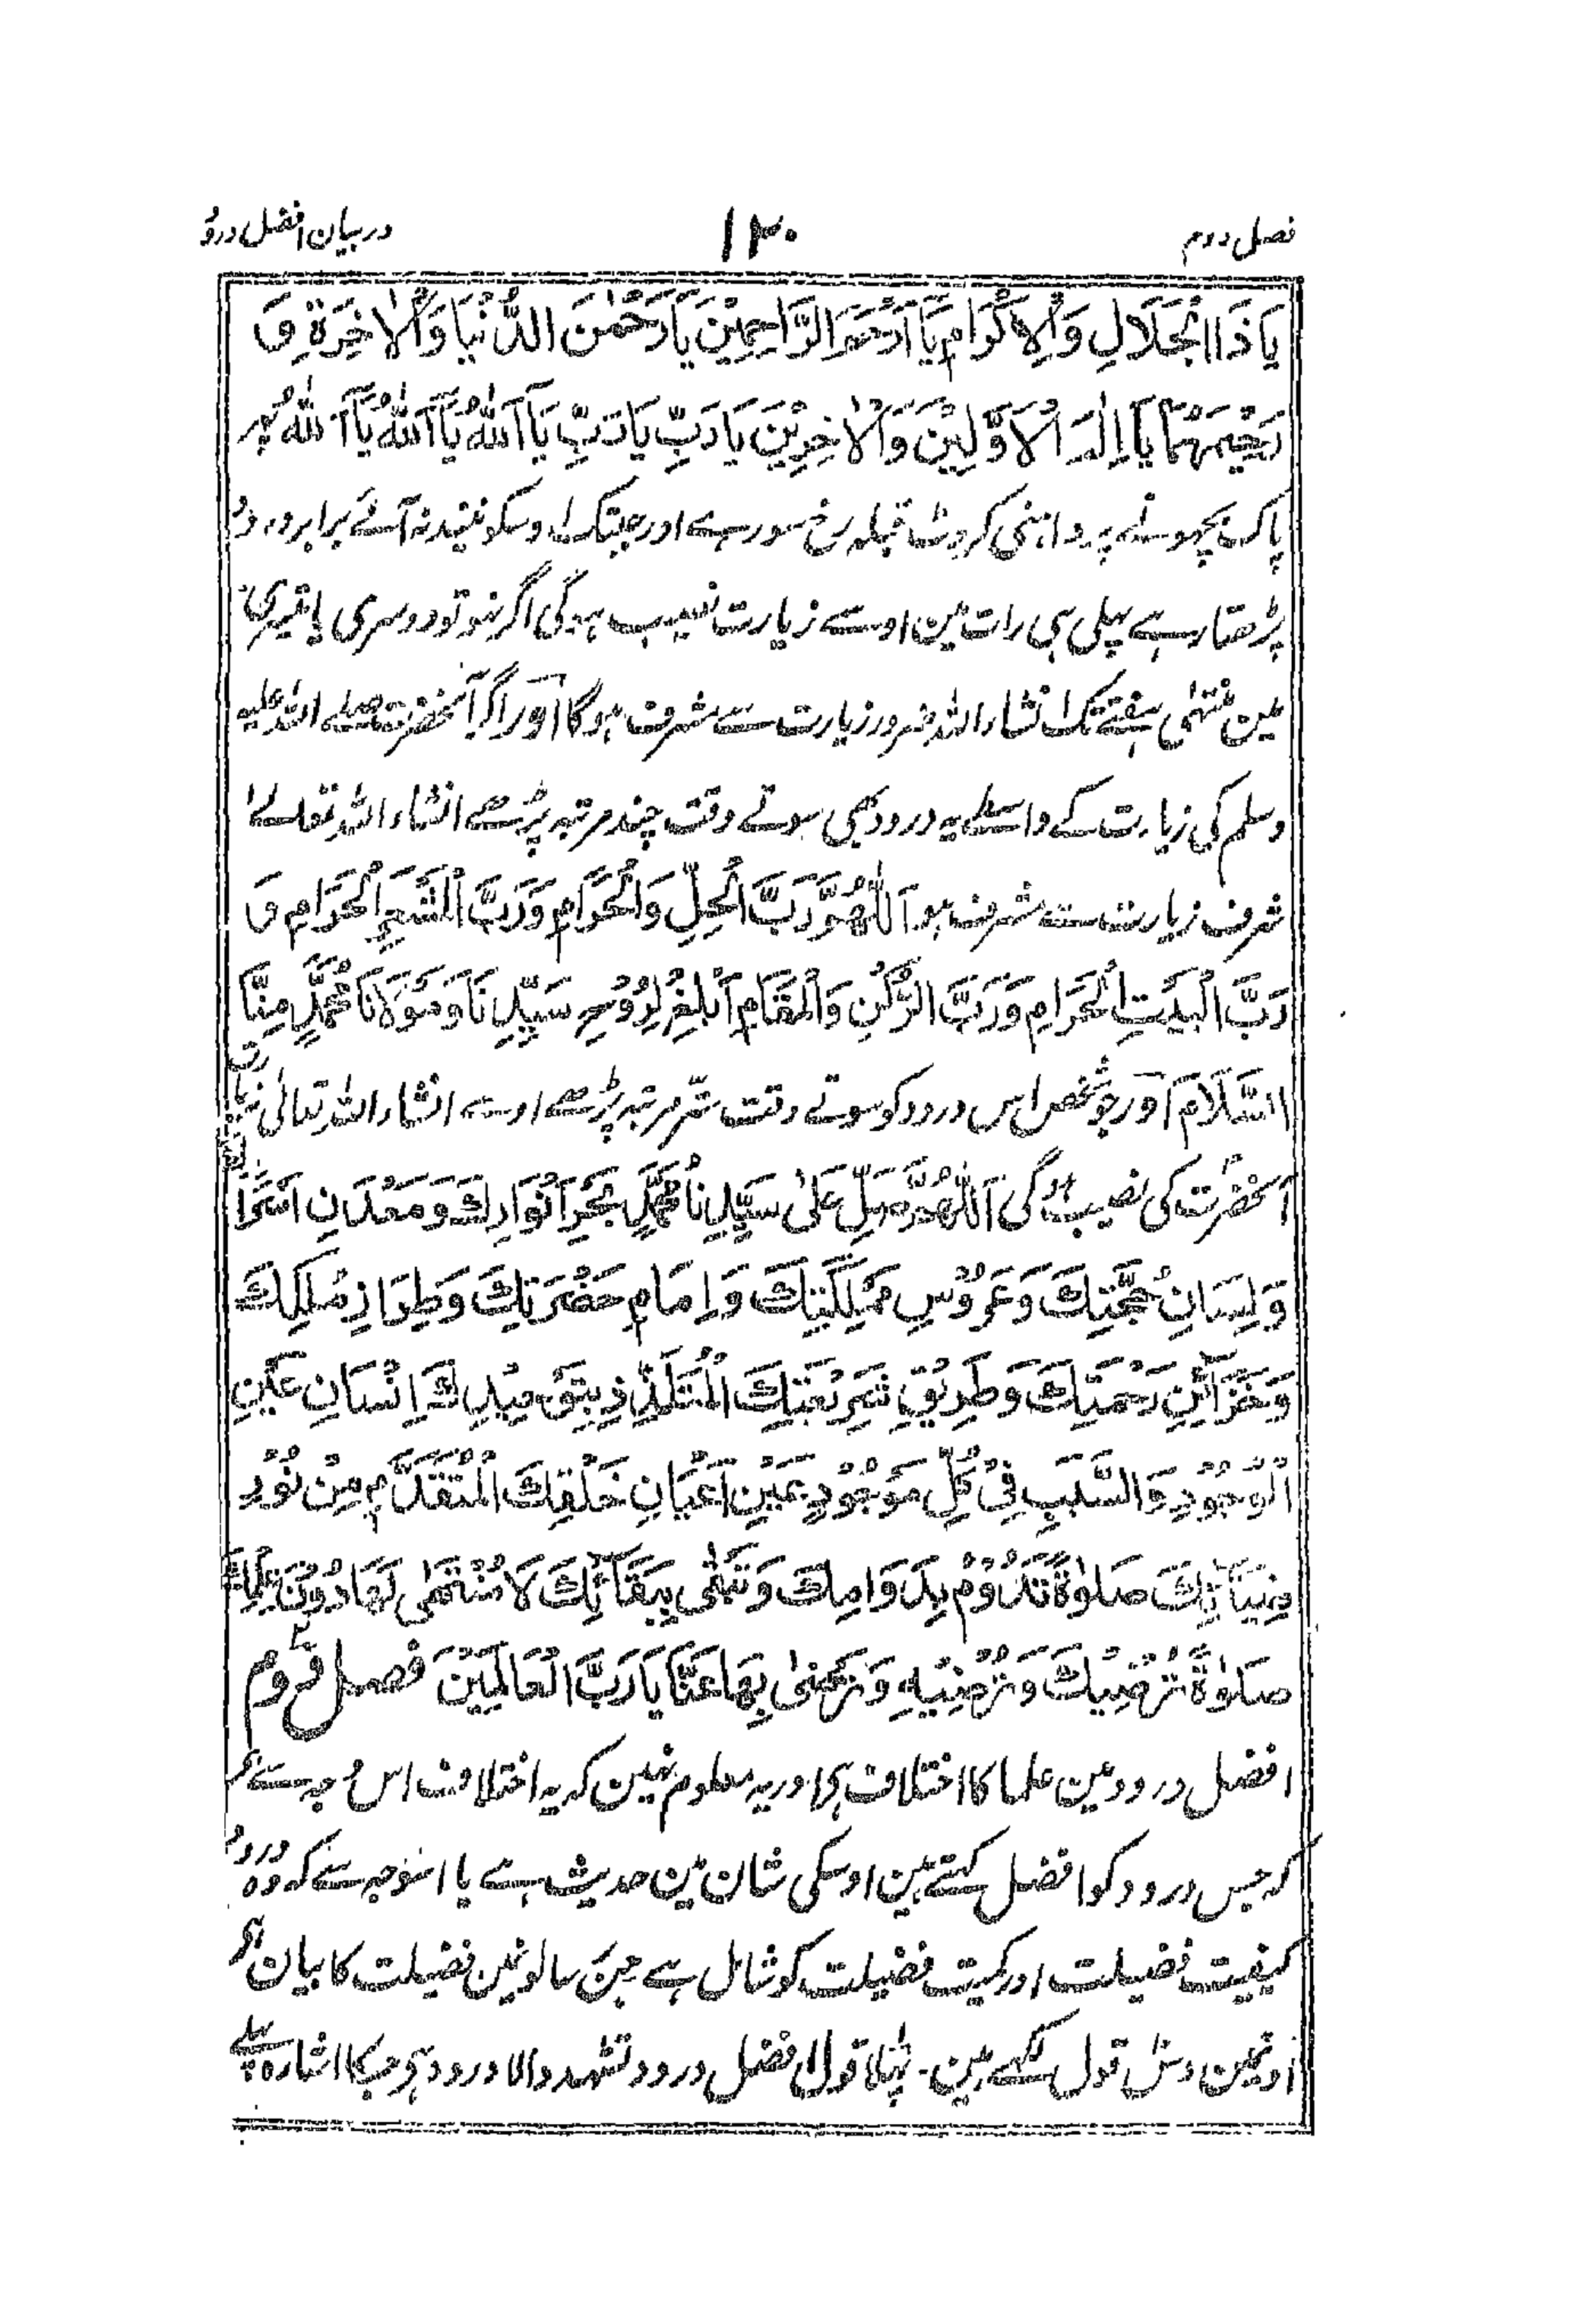 فصل دوم ۱۳۰ در بیان افضل درود
يَا ذَا الْجَلَالِ وَالْاِكْرَامِ يَآ اَرْحَمَ الرَّاحِمِيْنَ يَا رَحْمٰنَ الدُّنْيَا وَالْاٰخِرَةِ وَ
رَحِيْمَهُمَا يَآ اِلٰهَ الْاَوَّلِيْنَ وَالْاٰخِرِيْنَ يَا رَبِّ يَا رَبِّ يَآ اَللّٰهُ يَآ اَللّٰهُ يَآ اَللّٰهُ پهر
پاک بچھونے پر داہنی کروٹ قبلہ رخ سو رہے اور جبتک اوسکو نیند نہ آئے برابر درود
پڑھتا رہے پہلی ہی رات مین اوسے زیارت نصیب ہوگی اگر نہو تو دوسری یا تیسری
مین منتہی ہفتے تک انشاء اللہ ضرور زیارت سے مشرف ہوگا اور اگر آنحضرت صلے اللہ علیہ
وسلم کی زیارت کے واسطے یہ درود بھی سوتے وقت چند مرتبہ پڑھے انشاء اللہ تعالے
شرف زیارت سے مشرف ہو اَللّٰهُمَّ رَبَّ الْحِلِّ وَالْحَرَامِ وَرَبَّ الْمَشْعَرِ الْحَرَامِ وَ
رَبَّ الْبَيْتِ الْحَرَامِ وَرَبَّ الرُّكْنِ وَالْمَقَامِ اَبْلِغْ لِرُوْحِ سَيِّدِنَا وَمَوْلَانَا مُحَمَّدٍ مِنَّا
السَّلَامَ اور جو شخص اس درود کو سوتے وقت ستر مرتبہ پڑھے اوسے انشاء اللہ تعالیٰ زیارت
آنحضرت کی نصیب ہوگی اَللّٰهُمَّ صَلِّ عَلٰى سَيِّدِنَا مُحَمَّدٍ بَحْرِ اَنْوَارِكَ وَمَعْدَنِ اَسْرَارِكَ
وَلِسَانِ حُجَّتِكَ وَعَرُوْسِ مَمْلِكَتِكَ وَاِمَامِ حَضْرَتِكَ وَطِرَازِ مُلْكِكَ
وَخَزَآئِنِ رَحْمَتِكَ وَطَرِيْقِ شَرِيْعَتِكَ الْمُتَلَذِّذِ بِتَوْحِيْدِكَ اِنْسَانِ عَيْنِ
الْوُجُوْدِ وَالسَّبَبِ فِيْ كُلِّ مَوْجُوْدٍ عَيْنِ اَعْيَانِ خَلْقِكَ الْمُتَقَدِّمِ مِنْ نُوْرِ
ضِيَآئِكَ صَلٰوةً تَدُوْمُ بِدَوَامِكَ وَتَبْقٰى بِبَقَآئِكَ لَا مُنْتَهٰى لَهَا دُوْنَ عِلْمِكَ
صَلٰوةً تُرْضِيْكَ وَتُرْضِيْهِ وَتَرْضٰى بِهَا عَنَّا يَا رَبَّ الْعَالَمِيْنَ فصل دوم
افضل درود مین علما کا اختلاف ہی اور یہ معلوم نہین کہ یہ اختلاف اس وجہ سے ہی
کہ جس درود کو افضل کہتے ہین اوسکی شان مین حدیث ہے یا اسوجہ سے کہ وہ درود
کیفیت فضیلت اور کمیت فضیلت کو شامل ہے جن رسالونمین فضیلت کا بیان ہی
اونمین دس قول لکھے ہین۔ پہلا قول افضل درود تشہد والا درود ہی جسکا اشارہ پہلے